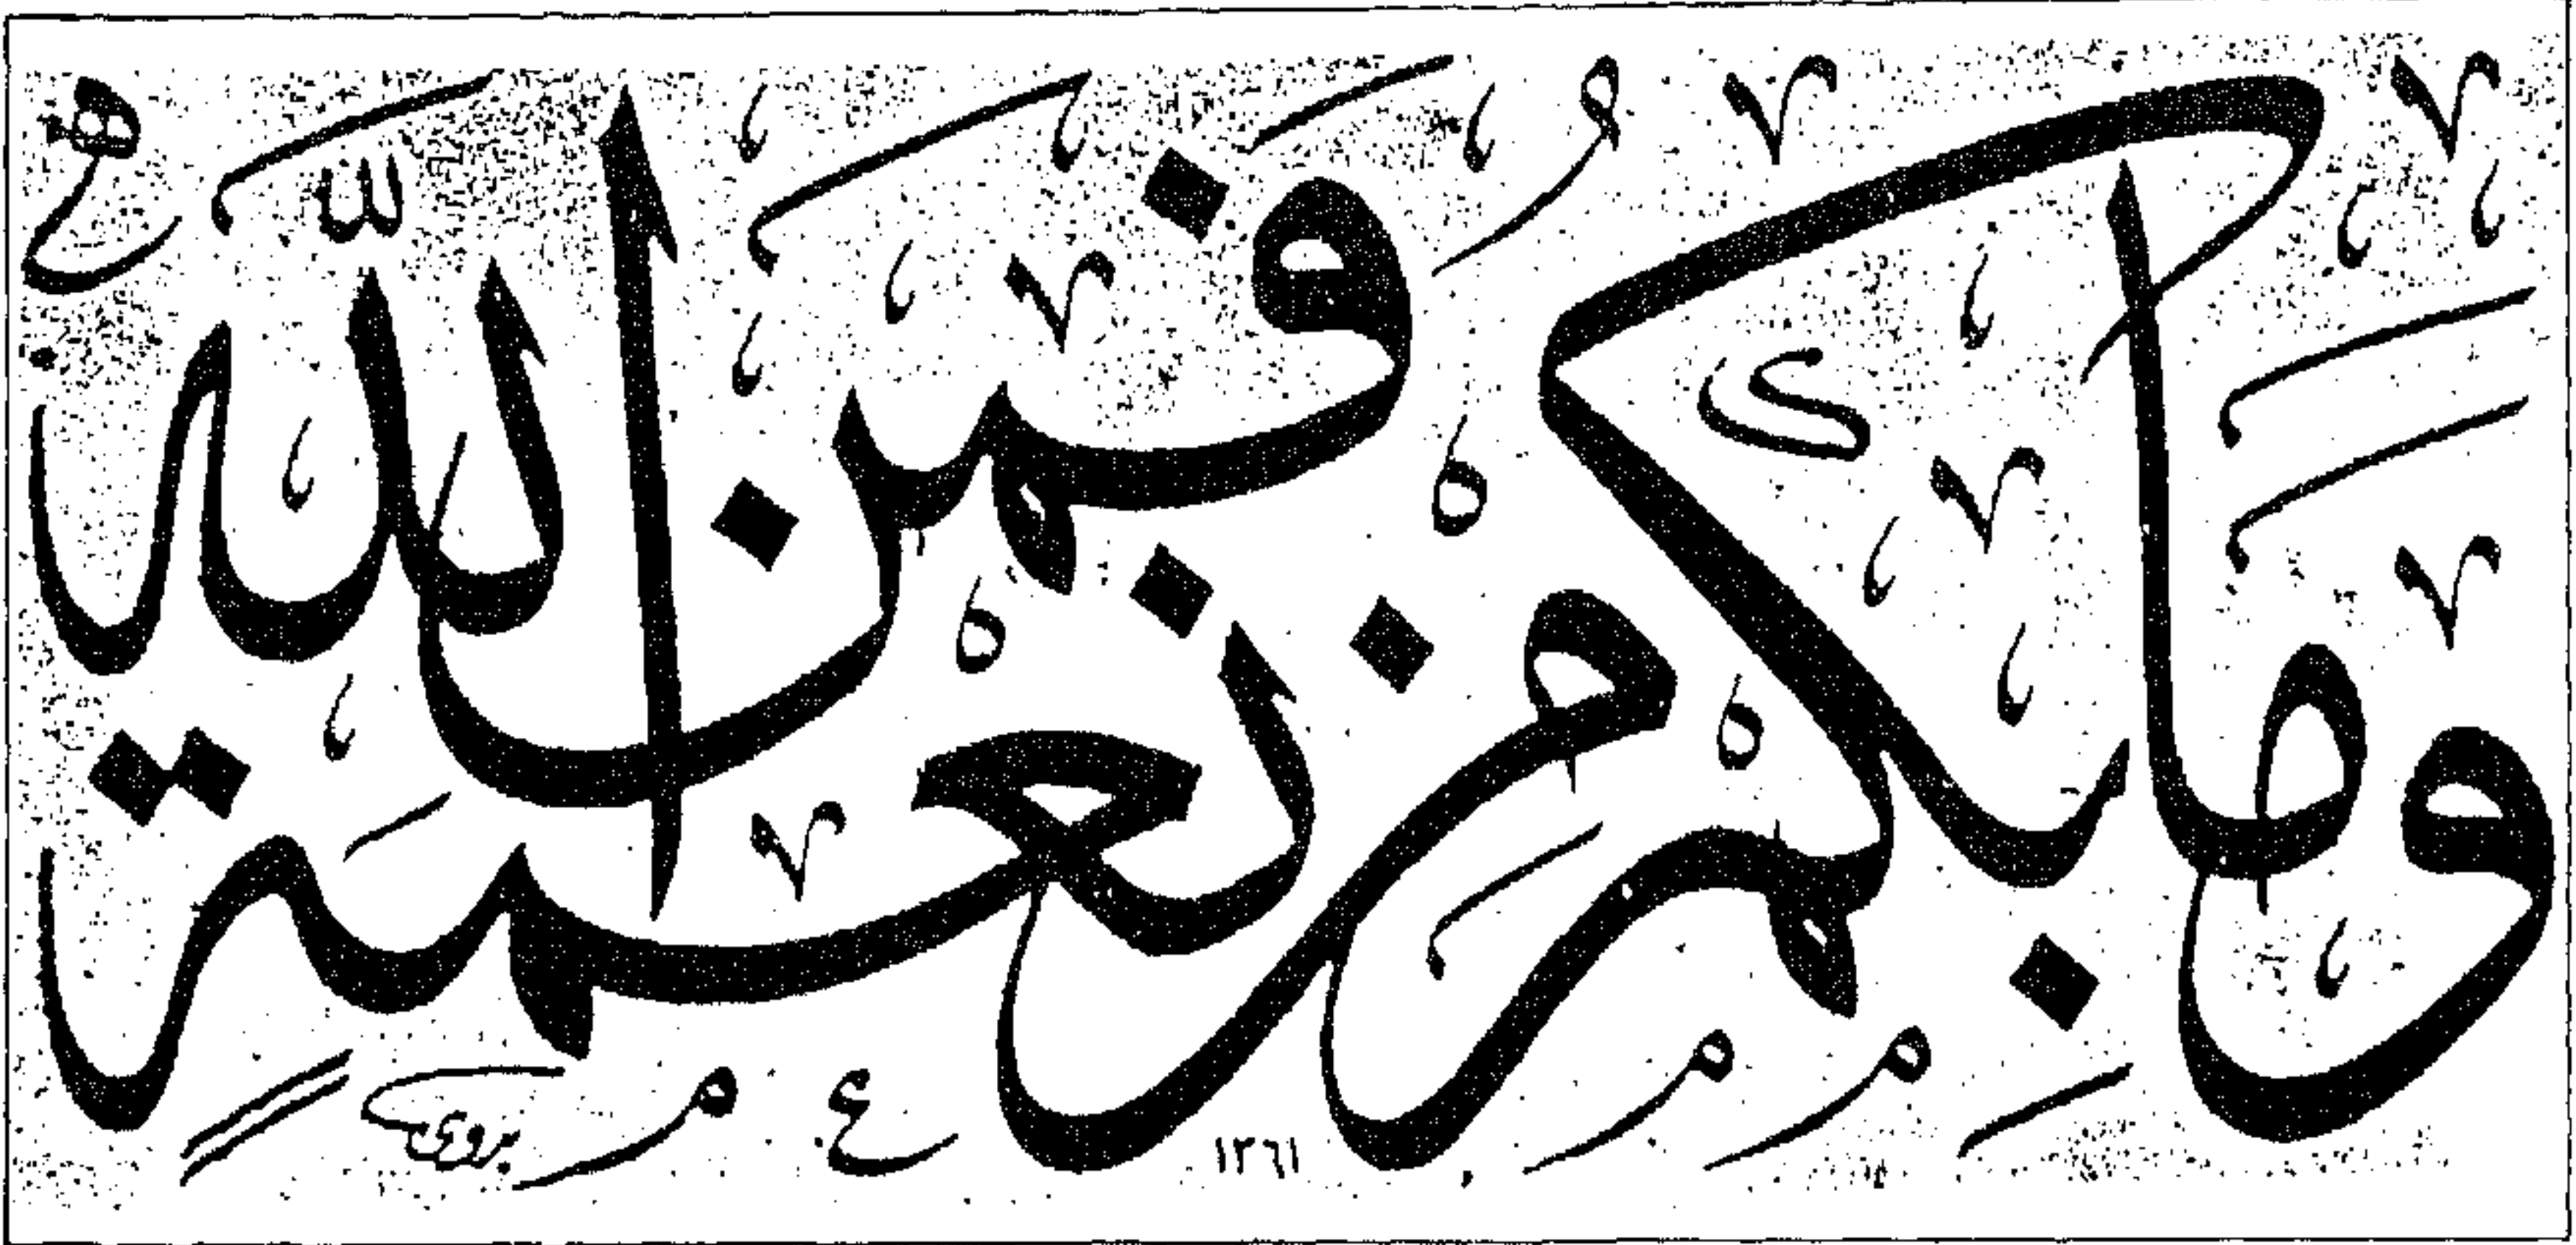 وما بكم من نعمة فمن الله
١٣٦١